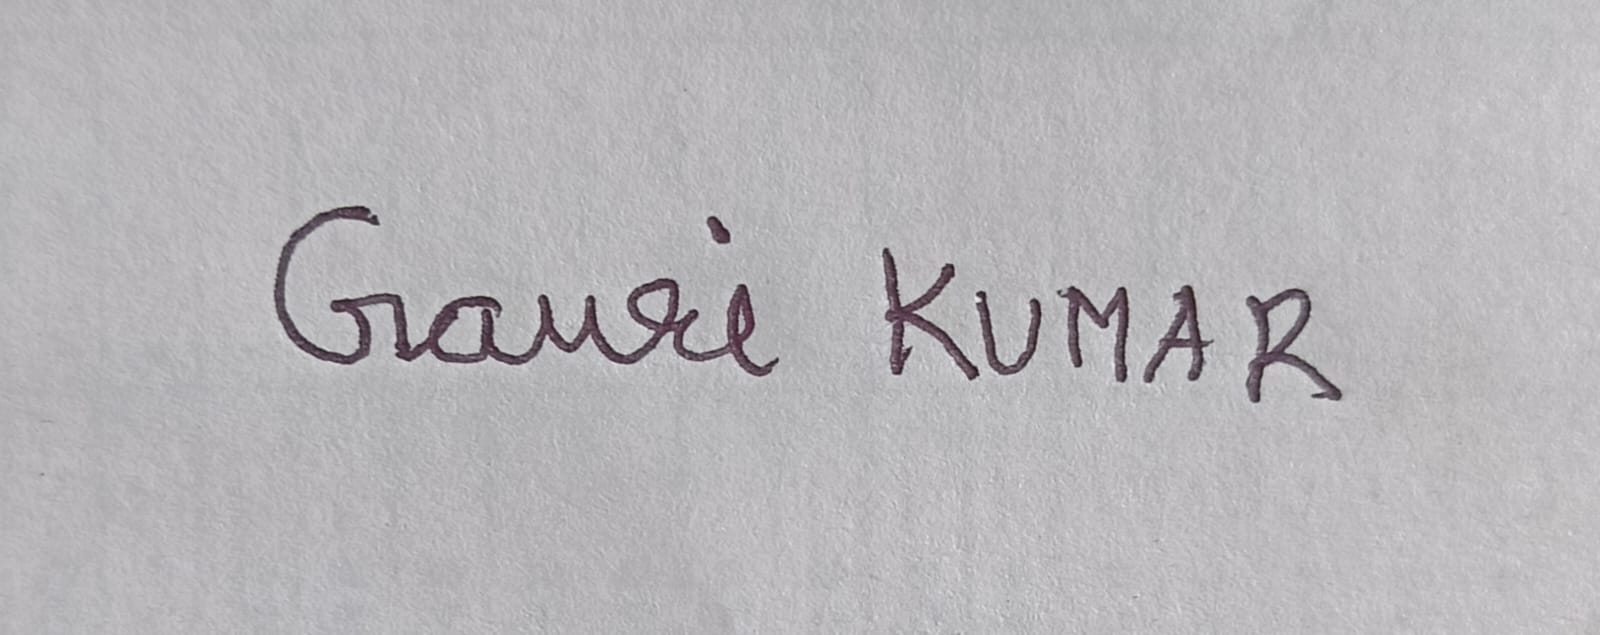 Gauri KUMAR